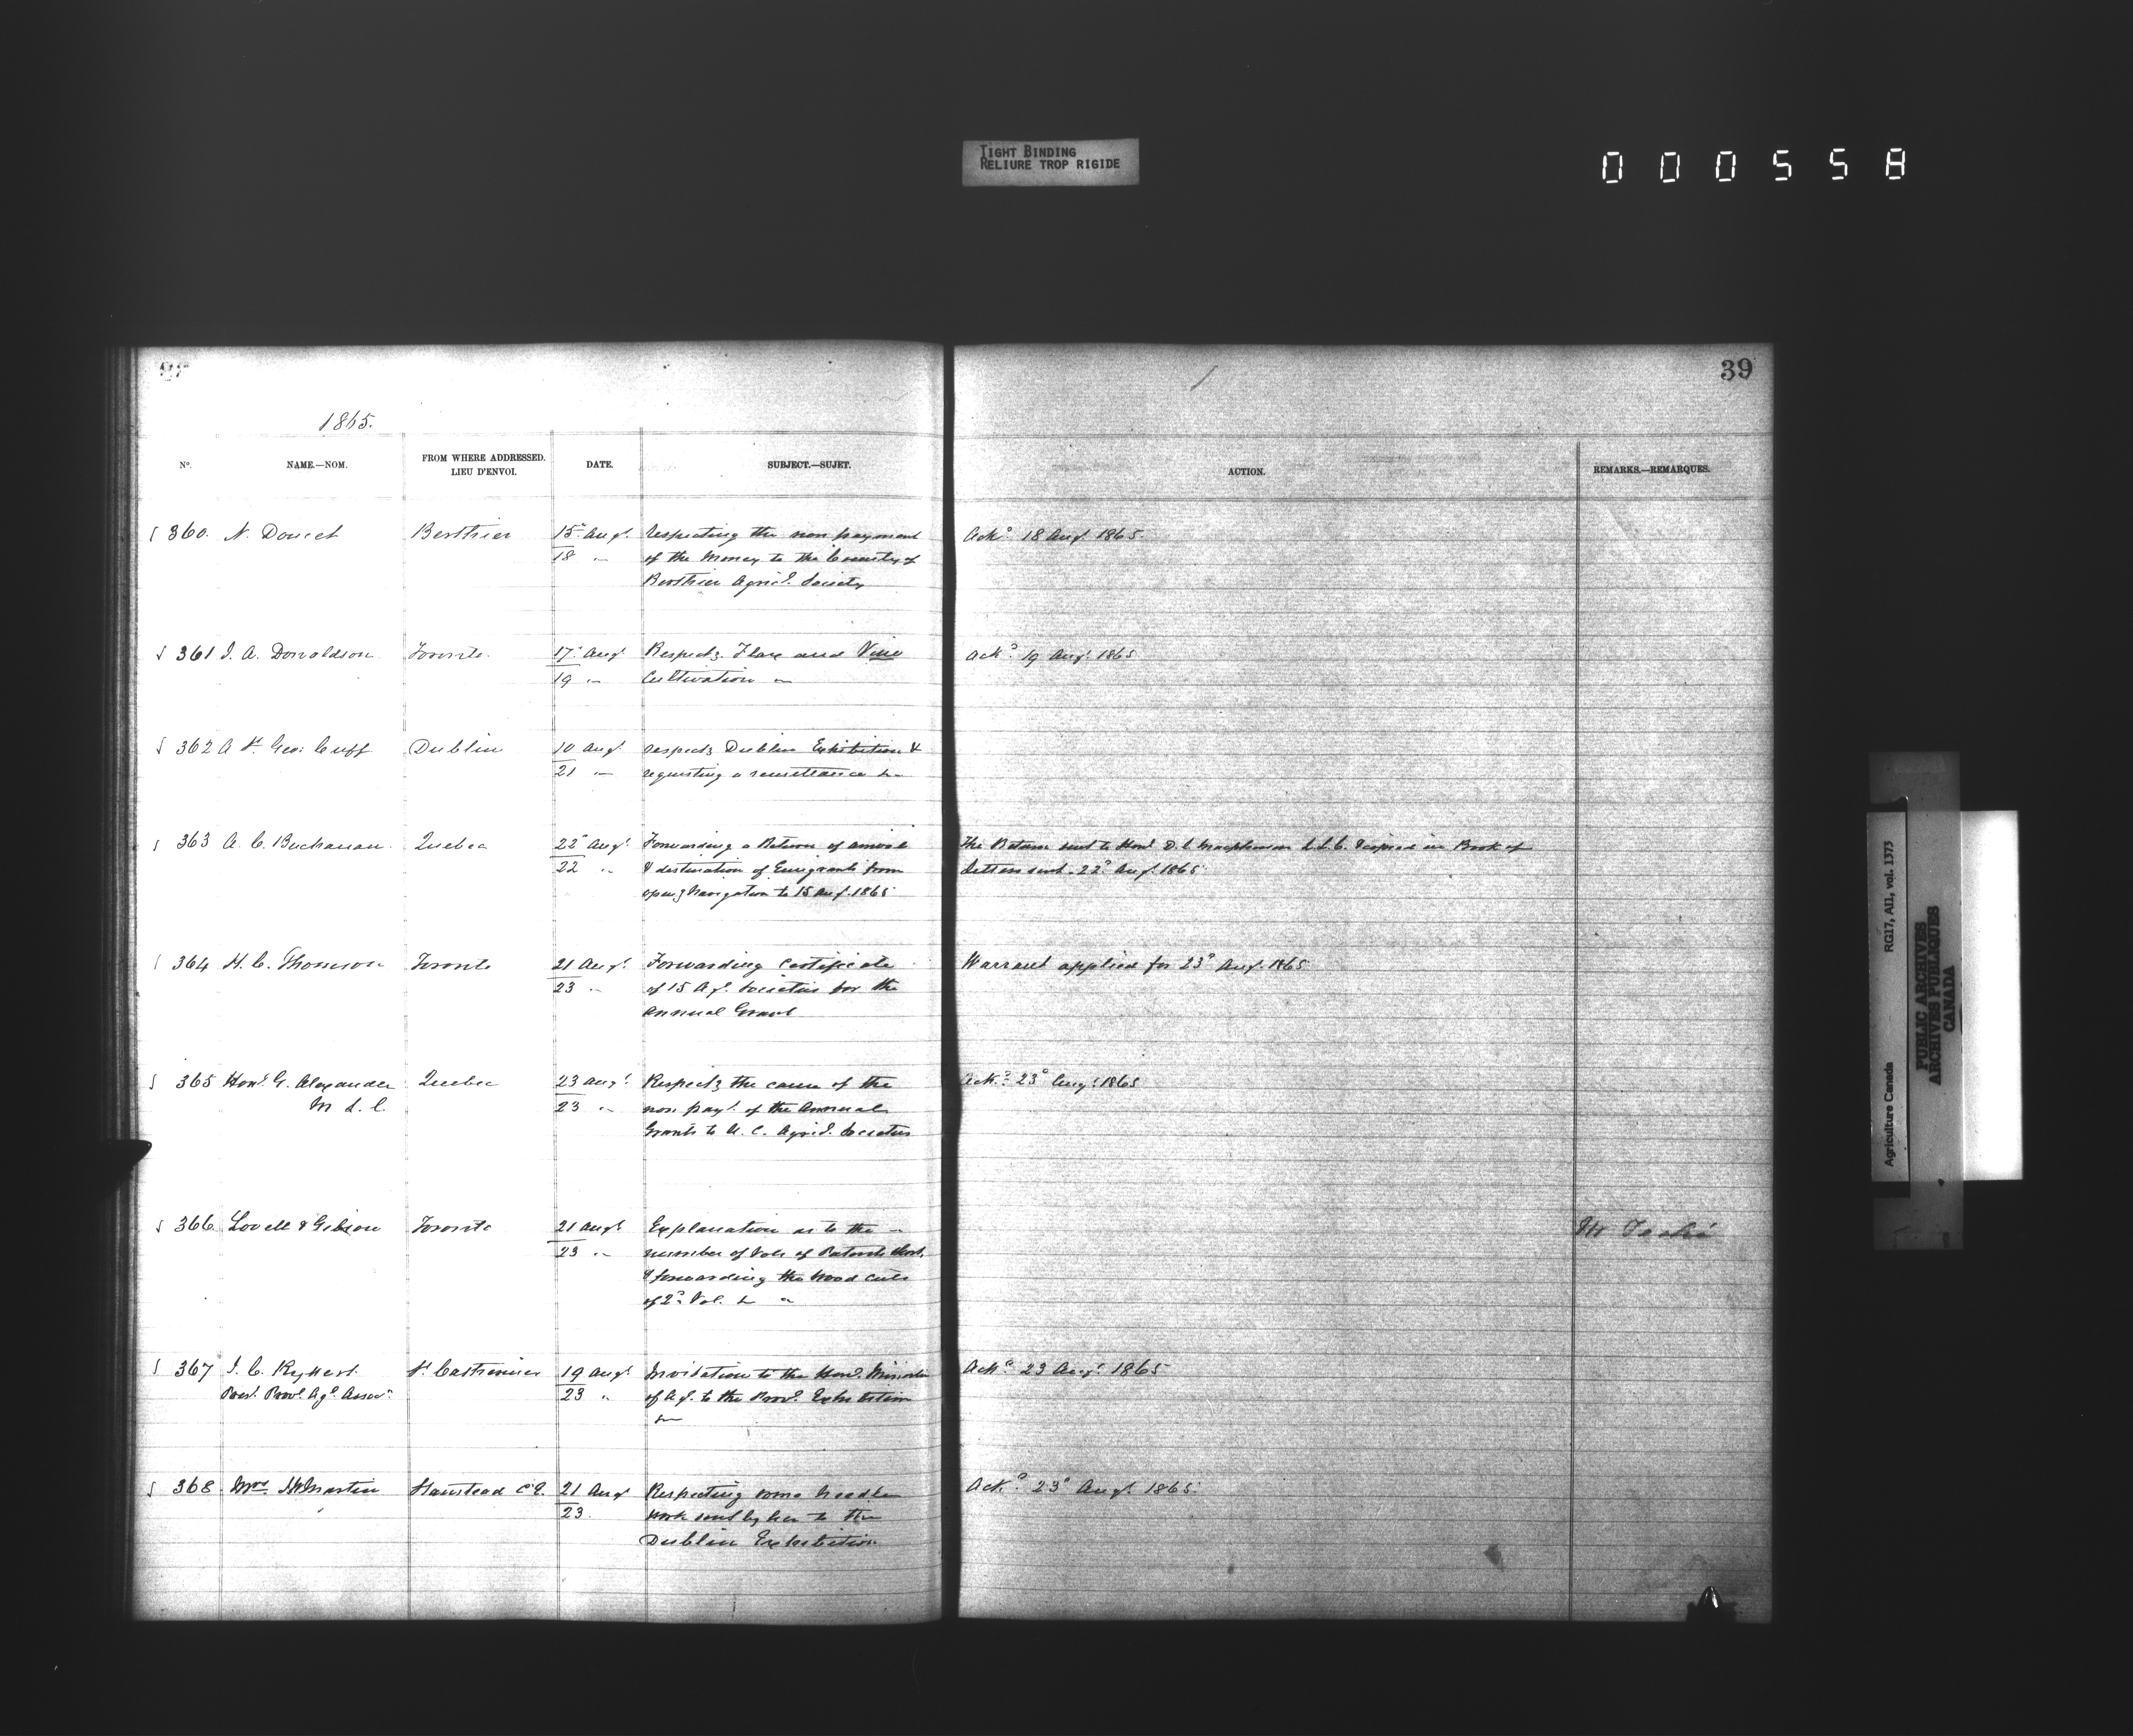 TIGHT BINDING
RELIURE TROP RIGIDE
000558
39
1865.
No.
NAME.—NOM.
FROM WHERE ADDRESSED.
LIEU D'ENVOI.
DATE.
SUBJECT.—SUJET.
ACTION.
REMARKS.—REMARQUES.
360. N. Doucet Berthier 15" Augt. Respecting the non payment Ackd 18 Augt. 1865.
18 " of the Money to the County of
Berthier Agricl. Society
361 J. A. Donaldson Toronto. 17" Augt Respectg. Flax and Vine Ackd 19 Augt. 1865
19 " Cultivation "
362 A St. Geo: Cuff Dublin 10 Augt respectg Dublin Exhibition &
21 " requesting a remittance &c
363 A. C. Buchanan. Quebec 22" Augt. Forwarding a Return of arrival The Return sent to Honl D. L. Macpherson M.L.C. Copied in Book of
22 " & destination of Emigrants from Letters sent. 22d Augt. 1865
openg Navigation to 15 Augt. 1865
364 H. C. Thomson Toronto 21 Augt. Forwarding Certificate Warrant applied for 23d Augt. 1865
23 " of 15 Agl. Societies for the
Annual Grant
365 Honl. G. Alexander Quebec 23 Augt. Respectg the cause of the Ackd 23d Augt. 1865
M L. C. 23 " non payt. of the Annual
Grants to U. C. Agricl. Societies
366 Lovell & Gibson Toronto 21 Augt Explanation as to the
23 " number of Vols of Patents
& forwarding the Wood Cuts
of 2d Vol. &c "
Mr Taché
367 J. C. Rykert St Catherines 19 Augt Invitation to the Honl. Minister Ackd 23 Augt. 1865
Prest. Provl. Agl. Assocn. 23 " of Agl. to the Provl. Exhibition
&c
368 Mrs. Martin Stanstead C.E. 21 Augt Respecting some Needle Ackd 23d Augt. 1865.
23. work sent by her to the
Dublin Exhibition
Agriculture Canada RG17, AII, vol. 1373
PUBLIC ARCHIVES
ARCHIVES PUBLIQUES
CANADA